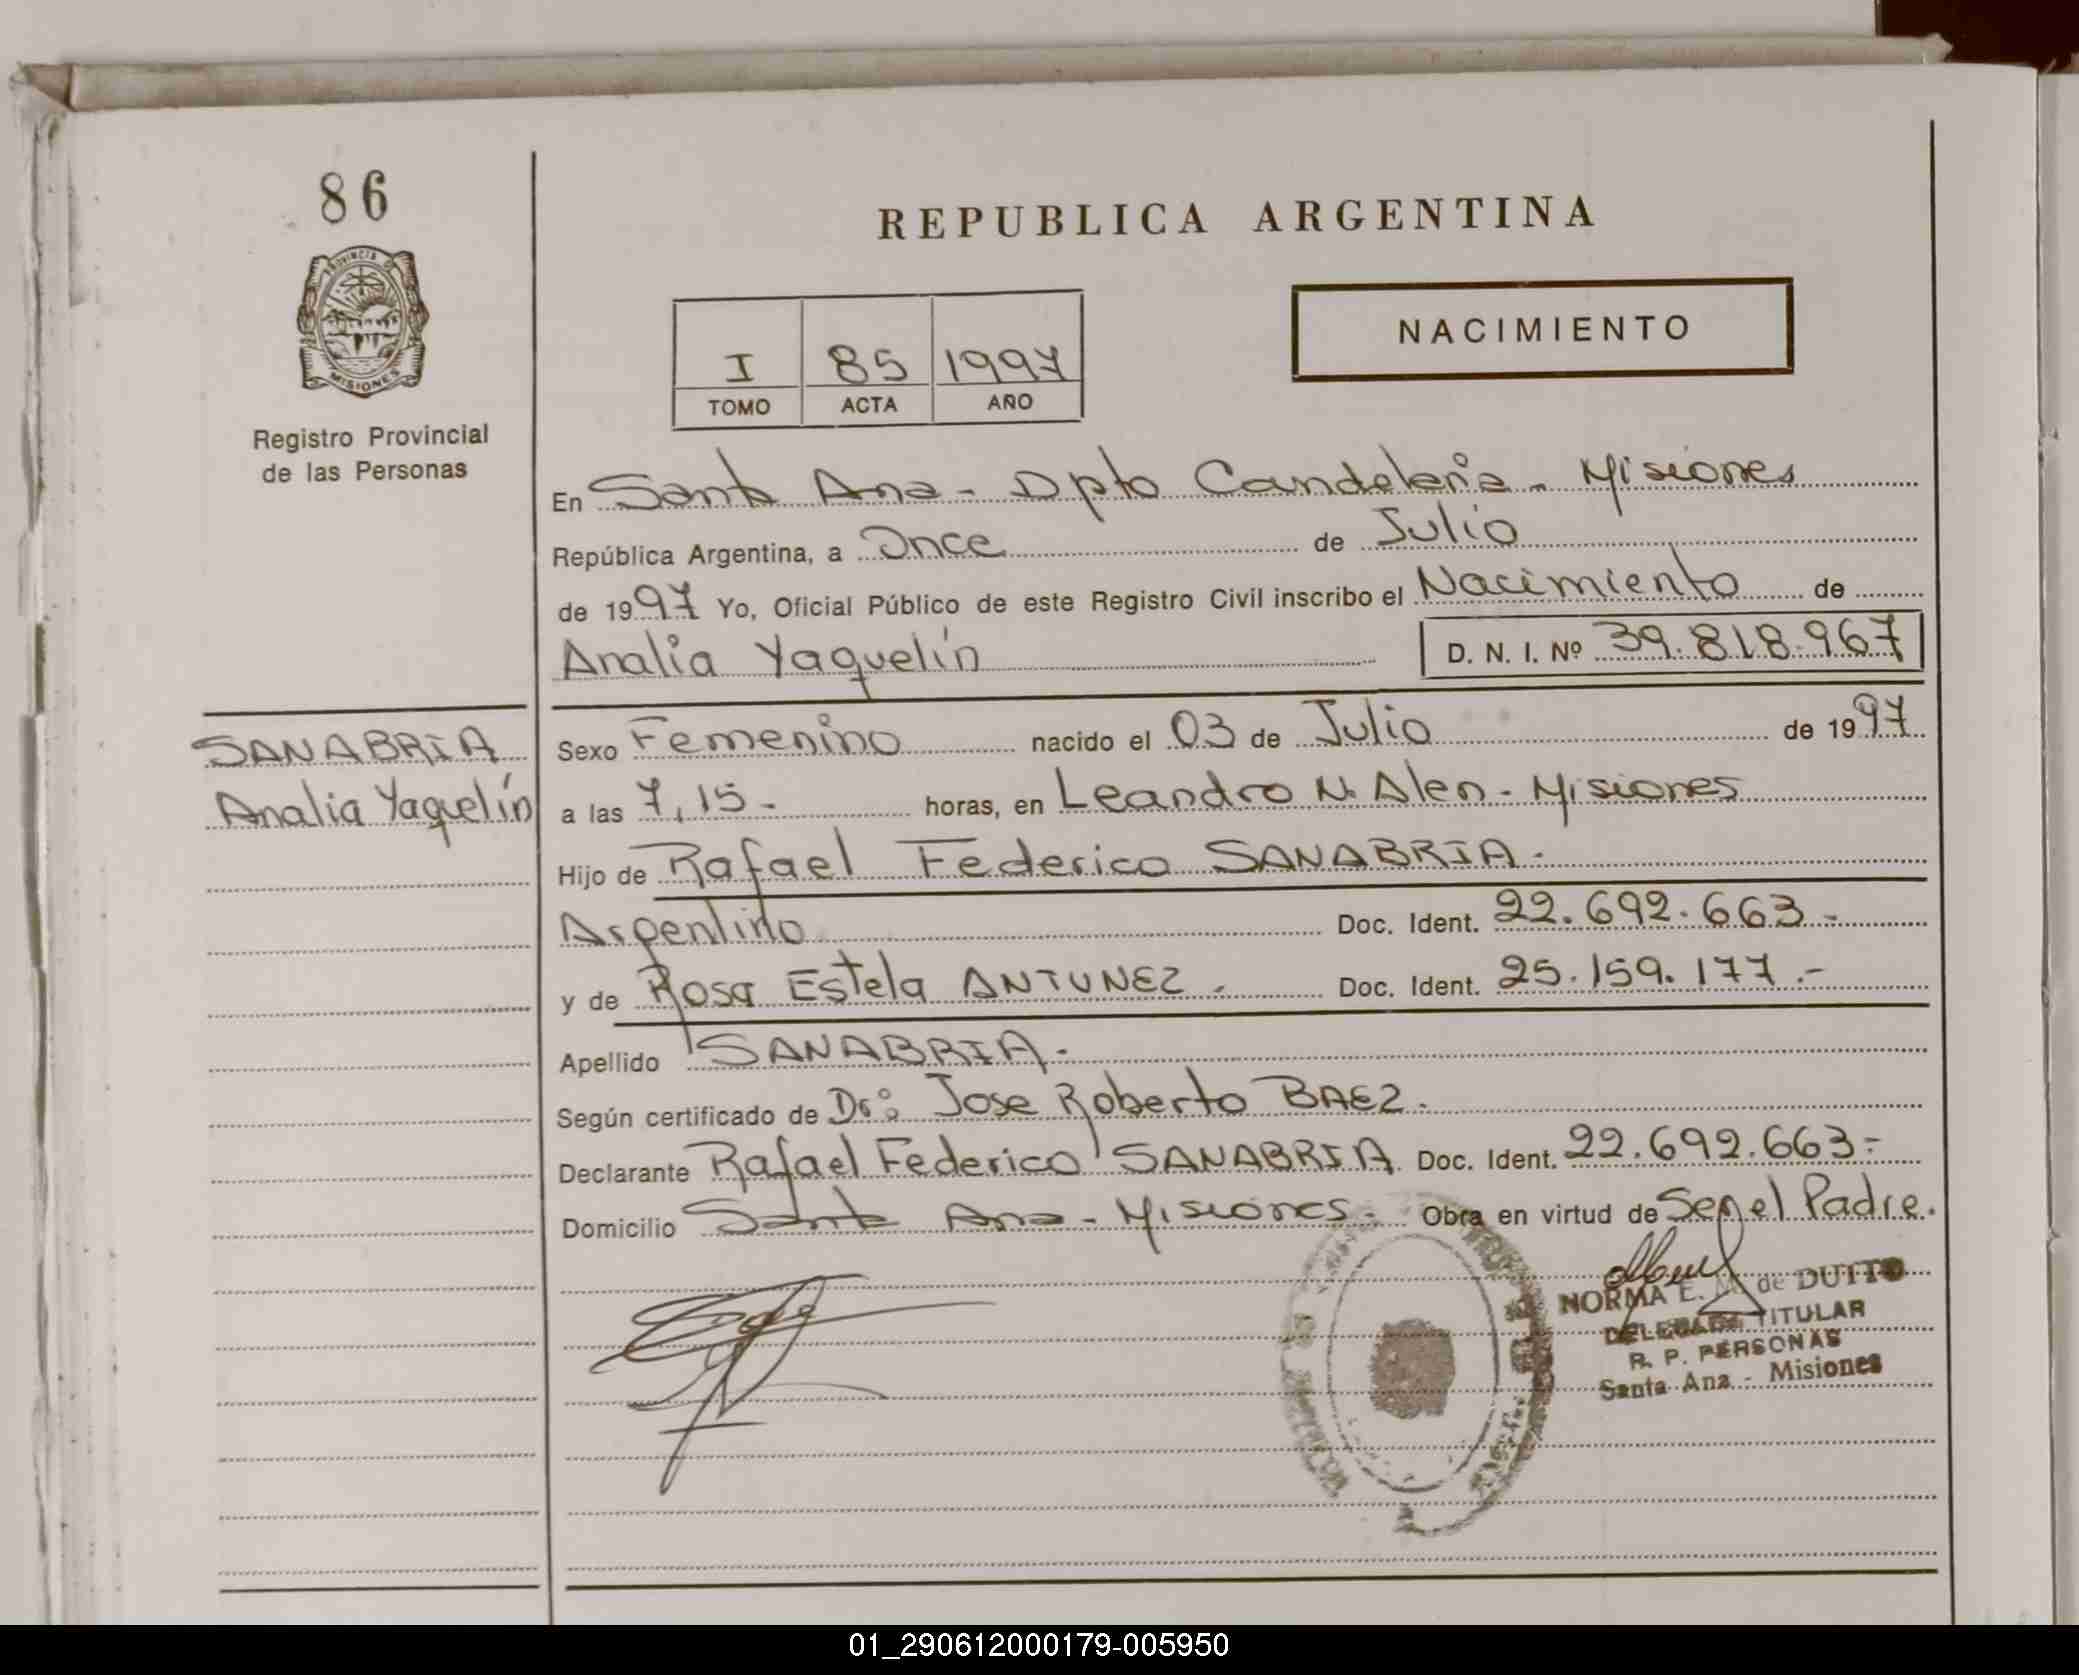 86
PROVINCIA DE
MISIONES
Registro Provincial
de las Personas
REPUBLICA ARGENTINA
I 85 1997
TOMO ACTA AÑO
NACIMIENTO
En Santa Ana - Dpto Candelaria - Misiones
República Argentina, a Once de Julio
de 1997 Yo, Oficial Público de este Registro Civil inscribo el Nacimiento de
Analia Yaquelín D. N. I. Nº 39.818.967
SANABRIA
Analia Yaquelín
Sexo Femenino nacido el 03 de Julio de 1997
a las 7,15 - horas, en Leandro N. Alen - Misiones
Hijo de Rafael Federico SANABRIA -
Argentino Doc. Ident. 22.692.663 -
y de Rosa Estela ANTUNEZ. Doc. Ident. 25.159.177.-
Apellido SANABRIA -
Según certificado de Dr: Jose Roberto BAEZ.
Declarante Rafael Federico SANABRIA Doc. Ident. 22.692.663 -
Domicilio Santa Ana - Misiones - Obra en virtud de Ser el Padre.
NORMA E. M. de DUTTO
DELEGADA TITULAR
R. P. PERSONAS
Santa Ana - Misiones
01_290612000179-005950